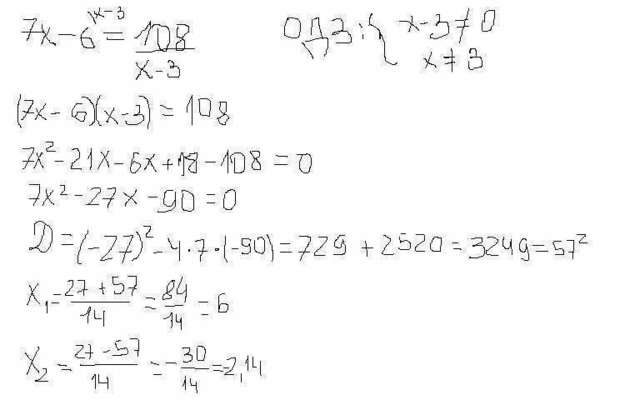 7x-6 |x-3 = 108/(x-3)
ОДЗ: { x-3≠0
x≠3
(7x-6)(x-3)=108
7x²-21x-6x+18-108=0
7x²-27x-90=0
D=(-27)²-4·7·(-90)=729+2520=3249=57²
x₁=(27+57)/14=84/14=6
x₂=(27-57)/14=-30/14=-2,14